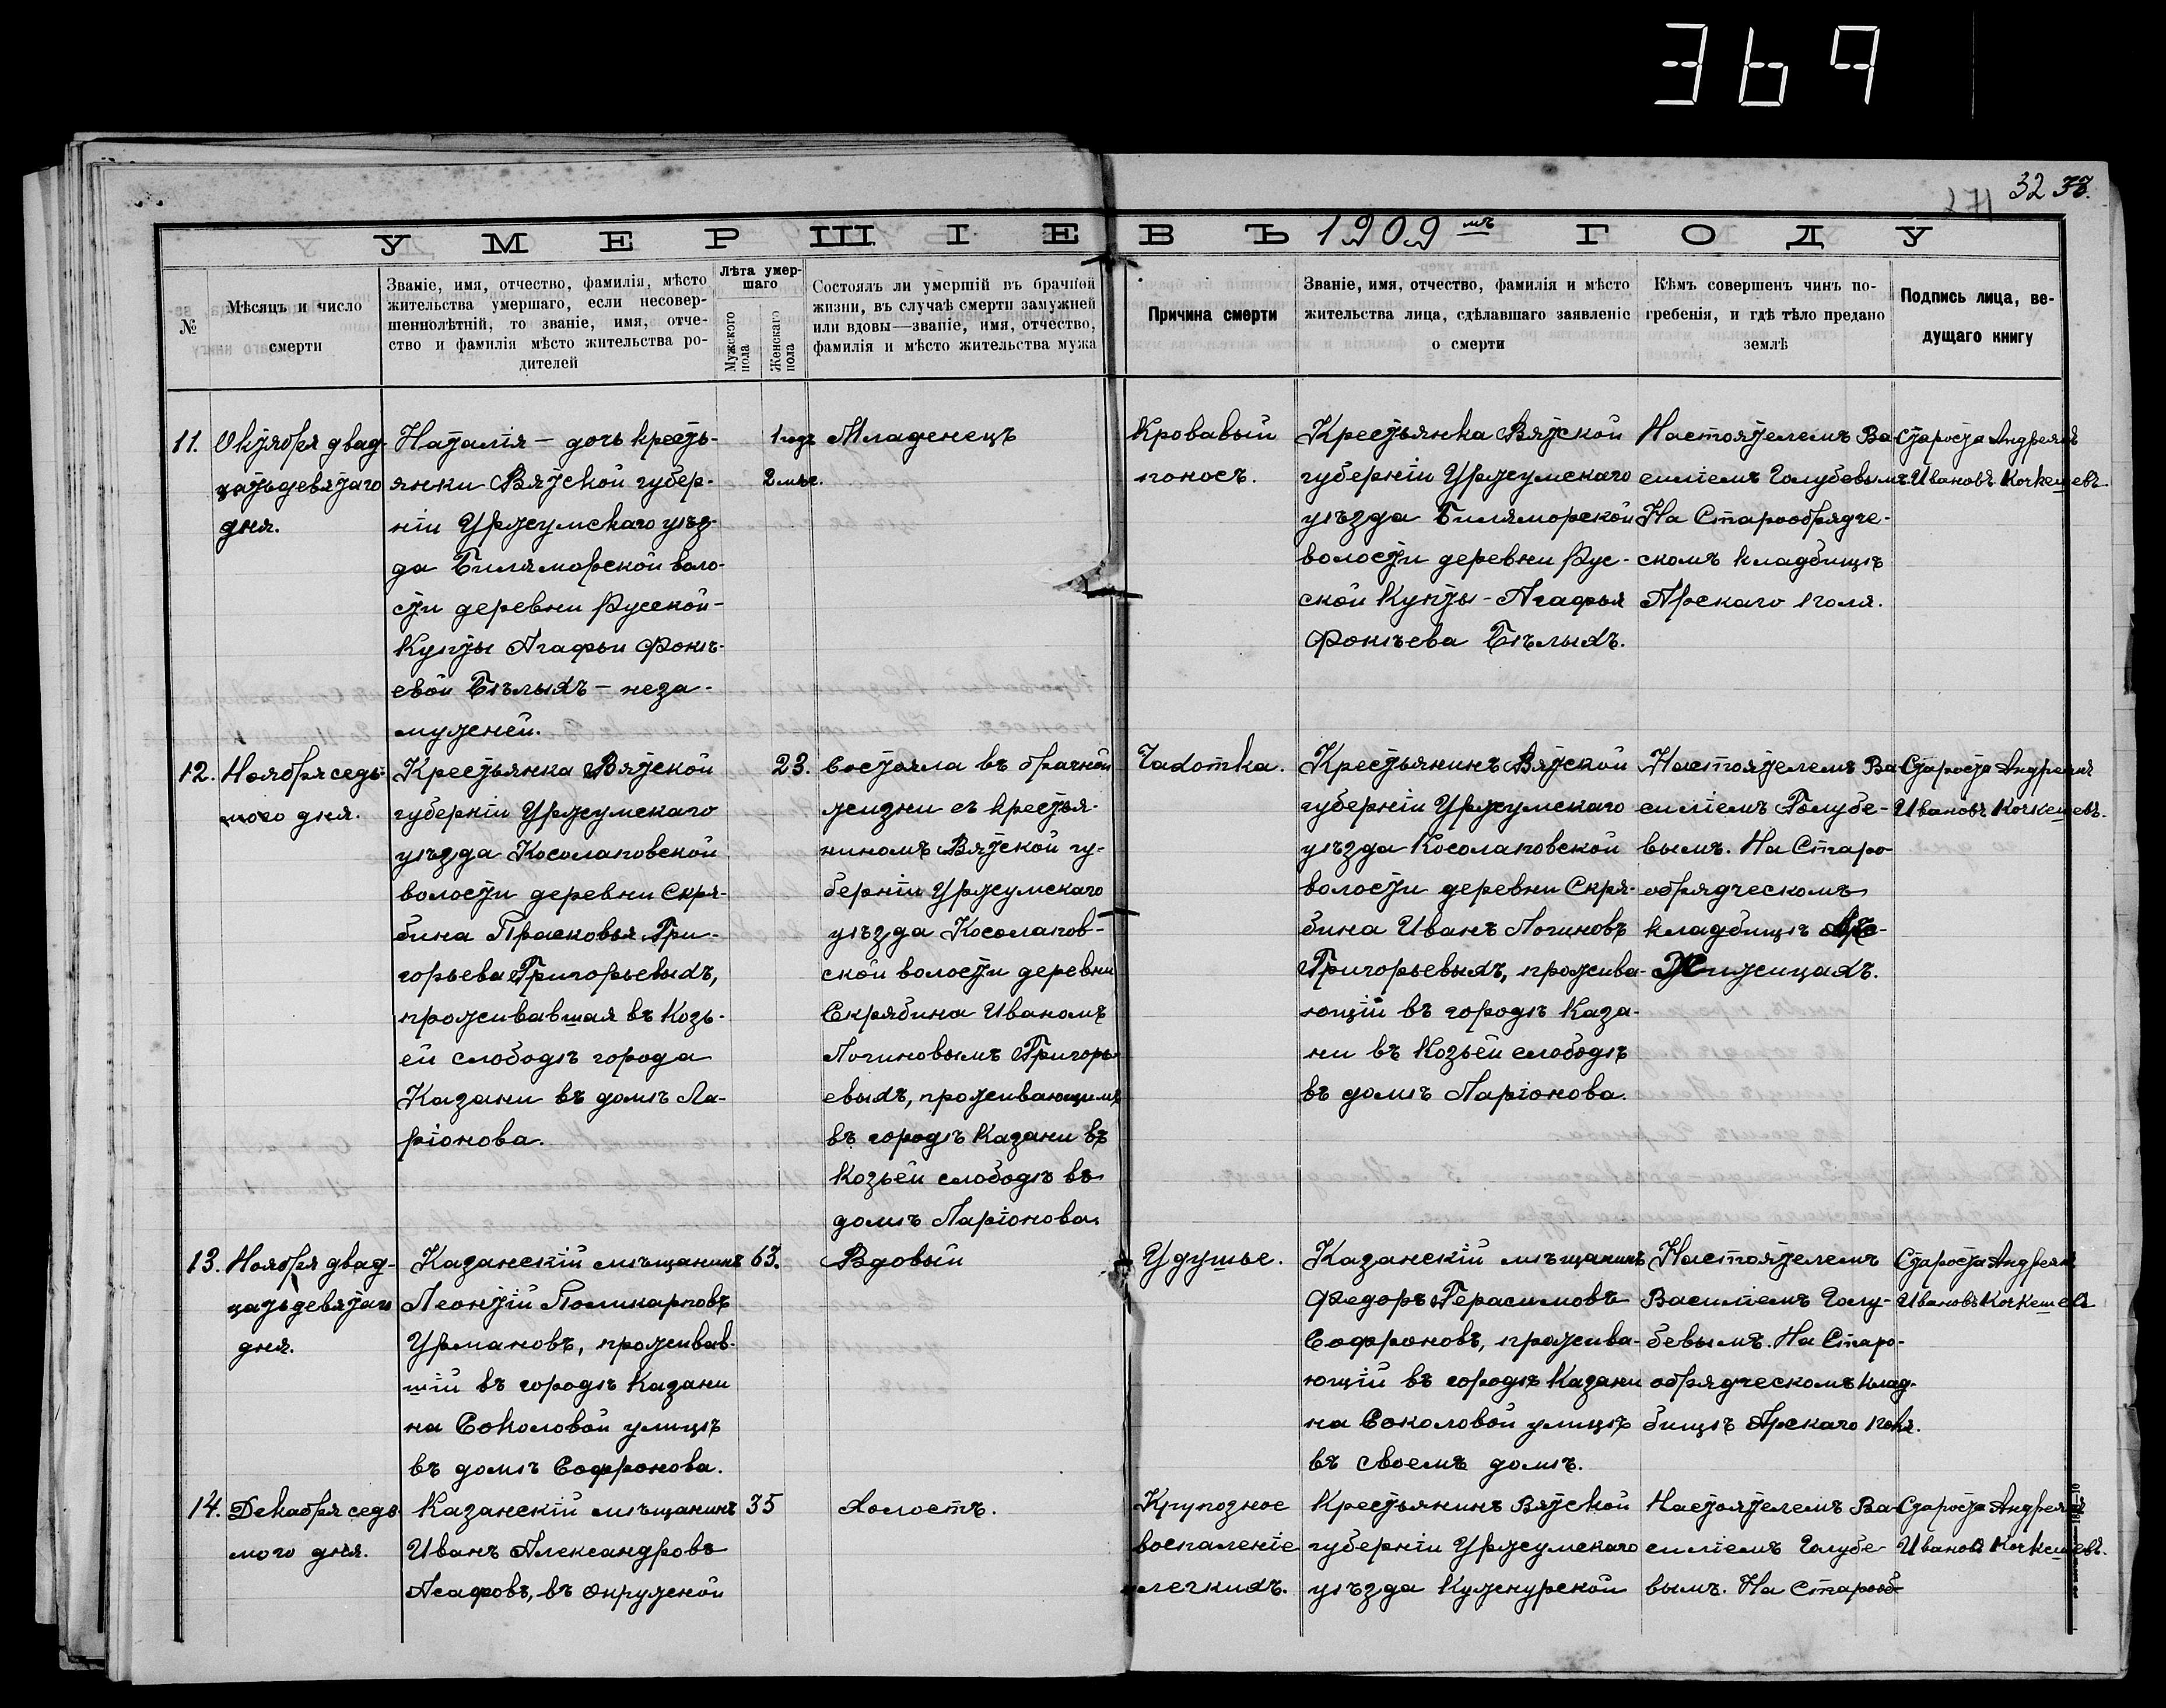 369
32
271
УМЕРШІЕ ВЪ 1909мъ ГОДУ
№
Мѣсяцъ и число
смерти
Званіе, имя, отчество, фамилія, мѣсто
жительства умершаго, если несовер-
шеннолѣтній, то званіе, имя, отче-
ство и фамилія мѣсто жительства ро-
дителей
Лѣта умер-
шаго
Мужского
пола
Женскаго
пола
Состоялъ ли умершій въ брачной
жизни, въ случаѣ смерти замужней
или вдовы—званіе, имя, отчество,
фамилія и мѣсто жительства мужа
Причина смерти
Званіе, имя, отчество, фамилія и мѣсто
жительства лица, сдѣлавшаго заявленіе
о смерти
Кѣмъ совершенъ чинъ по-
гребенія, и гдѣ тѣло предано
землѣ
Подпись лица, ве-
дущаго книгу
11.
Октября двад-
цатьдевятаго
дня.
Наталія — дочь кресть-
янки Вятской губер-
ніи Уржумскаго уѣз-
да Биляморской воло-
сти деревни Русской-
Купты Агафьи Фокѣ-
евой Бѣлыхъ — неза-
мужней.
1 годъ
2 мѣс.
Младенецъ
Кровавый
поносъ.
Крестьянка Вятской
губерніи Уржумскаго
уѣзда Биляморской
волости деревни Рус-
ской Купты - Агафья
Фокѣева Бѣлыхъ.
Настоятелемъ Ва-
силіемъ Голубовымъ.
На Старообрядче-
скомъ кладбищѣ
Арскаго поля.
Староста Андреянъ
Ивановъ Кочкешевъ.
12.
Ноября седь-
мого дня.
Крестьянка Вятской
губерніи Уржумскаго
уѣзда Косолаповской
волости деревни Скря-
бина Прасковья Гри-
горьева Григорьевыхъ,
проживавшая въ Козь-
ей слободѣ города
Казани въ домѣ Ла-
ріонова.
23.
Состояла въ брачной
жизни съ крестья-
ниномъ Вятской гу-
берніи Уржумскаго
уѣзда Косолапов-
ской волости деревни
Скрябина Иваномъ
Логиновымъ Григорь-
евыхъ, проживающимъ
въ городѣ Казани въ
Козьей слободѣ въ
домѣ Ларіонова.
Чахотка.
Крестьянинъ Вятской
губерніи Уржумскаго
уѣзда Косолаповской
волости деревни Скря-
бина Иванъ Логиновъ
Григорьевыхъ, прожива-
ющій въ городѣ Каза-
ни въ Козьей слободѣ
въ домѣ Ларіонова.
Настоятелемъ Ва-
силіемъ Голубе-
вымъ. На Старо-
обрядческомъ
кладбищѣ
Жижицахъ.
Староста Андреянъ
Ивановъ Кочкешевъ.
13.
Ноября двад-
цатьдевятаго
дня.
Казанскій мѣщанинъ
Леонтій Поликарповъ
Урмановъ, проживав-
шій въ городѣ Казани
на Соколовой улицѣ
въ домѣ Софронова.
63.
Вдовый
Удушье.
Казанскій мѣщанинъ
Федоръ Герасимовъ
Софроновъ, прожива-
ющій въ городѣ Казани
на Соколовой улицѣ
въ своемъ домѣ.
Настоятелемъ
Василіемъ Голу-
бевымъ. На Старо-
обрядческомъ клад-
бищѣ Арскаго поля.
Староста Андреянъ
Ивановъ Кочкешевъ
14.
Декабря седь-
мого дня.
Казанскій мѣщанинъ
Иванъ Александровъ
Асафовъ, въ окружной
35
Холостъ.
Крупозное
воспаленіе
легкихъ.
Крестьянинъ Вятской
губерніи Уржумскаго
уѣзда Кужнурской
Настоятелемъ Ва-
силіемъ Голубе-
вымъ. На Старооб-
Староста Андреянъ
Ивановъ Кочкешевъ.